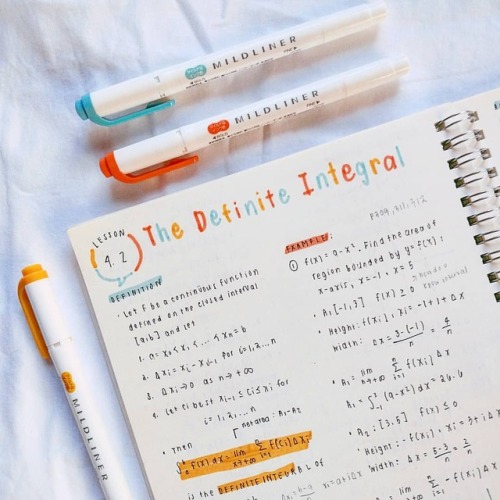 MILDLINER
MILDLINER
MILDLINER
LESSON
4.2
The Definite Integral
P309, 311, 312
DEFINITION
• Let f be a continuous function
defined on the closed interval
[a,b] and let
1. a = x₀ < x₁ < ... < xₙ = b
2. Δxᵢ = xᵢ - xᵢ₋₁ for i = 1, 2, ... n
3. Δxᵢ → 0 as n → +∞
4. Let cᵢ be st xᵢ₋₁ ≤ cᵢ ≤ xᵢ for
i = 1, 2, ... n
net area: A₁ - A₂
• Then
∫ f(x) dx = lim Σ f(cᵢ) Δxᵢ
is the DEFINITE INTEGRAL of
EXAMPLE:
① f(x) = 9 - x². Find the area of
region bounded by y = f(x),
x-axis, x = -1, x = 5
• A₁ [-1, 3] f(x) ≥ 0
• Height: f(xᵢ), xᵢ = -1 + i Δx
Width: Δx = 3-(-1)/n = 4/n
• A₁ = lim n→+∞ Σ i=1 n f(xᵢ) Δx
A₁ = ∫₋₁³ (9-x²) dx = 26.6
• A₂: [3, 5] f(x) ≤ 0
• Height: -f(xᵢ), xᵢ = 3 + i Δx
Width: Δx = 5-3/n = 2/n